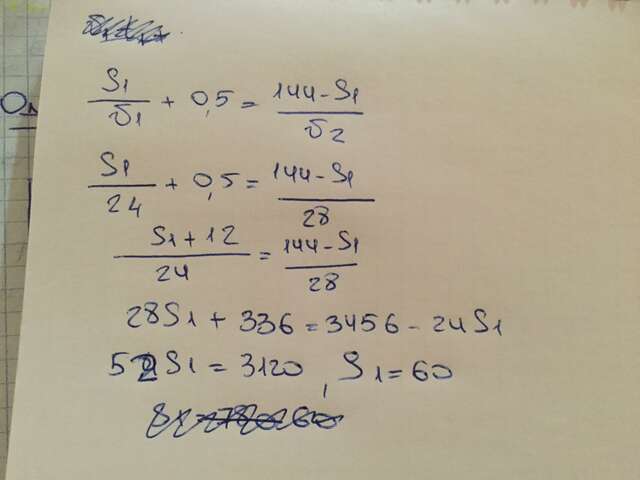 S1/υ1 + 0,5 = 144-S1/υ2
S1/24 + 0,5 = 144-S1/28
S1+12/24 = 144-S1/28
28S1 + 336 = 3456 - 24S1
52S1 = 3120, S1 = 60